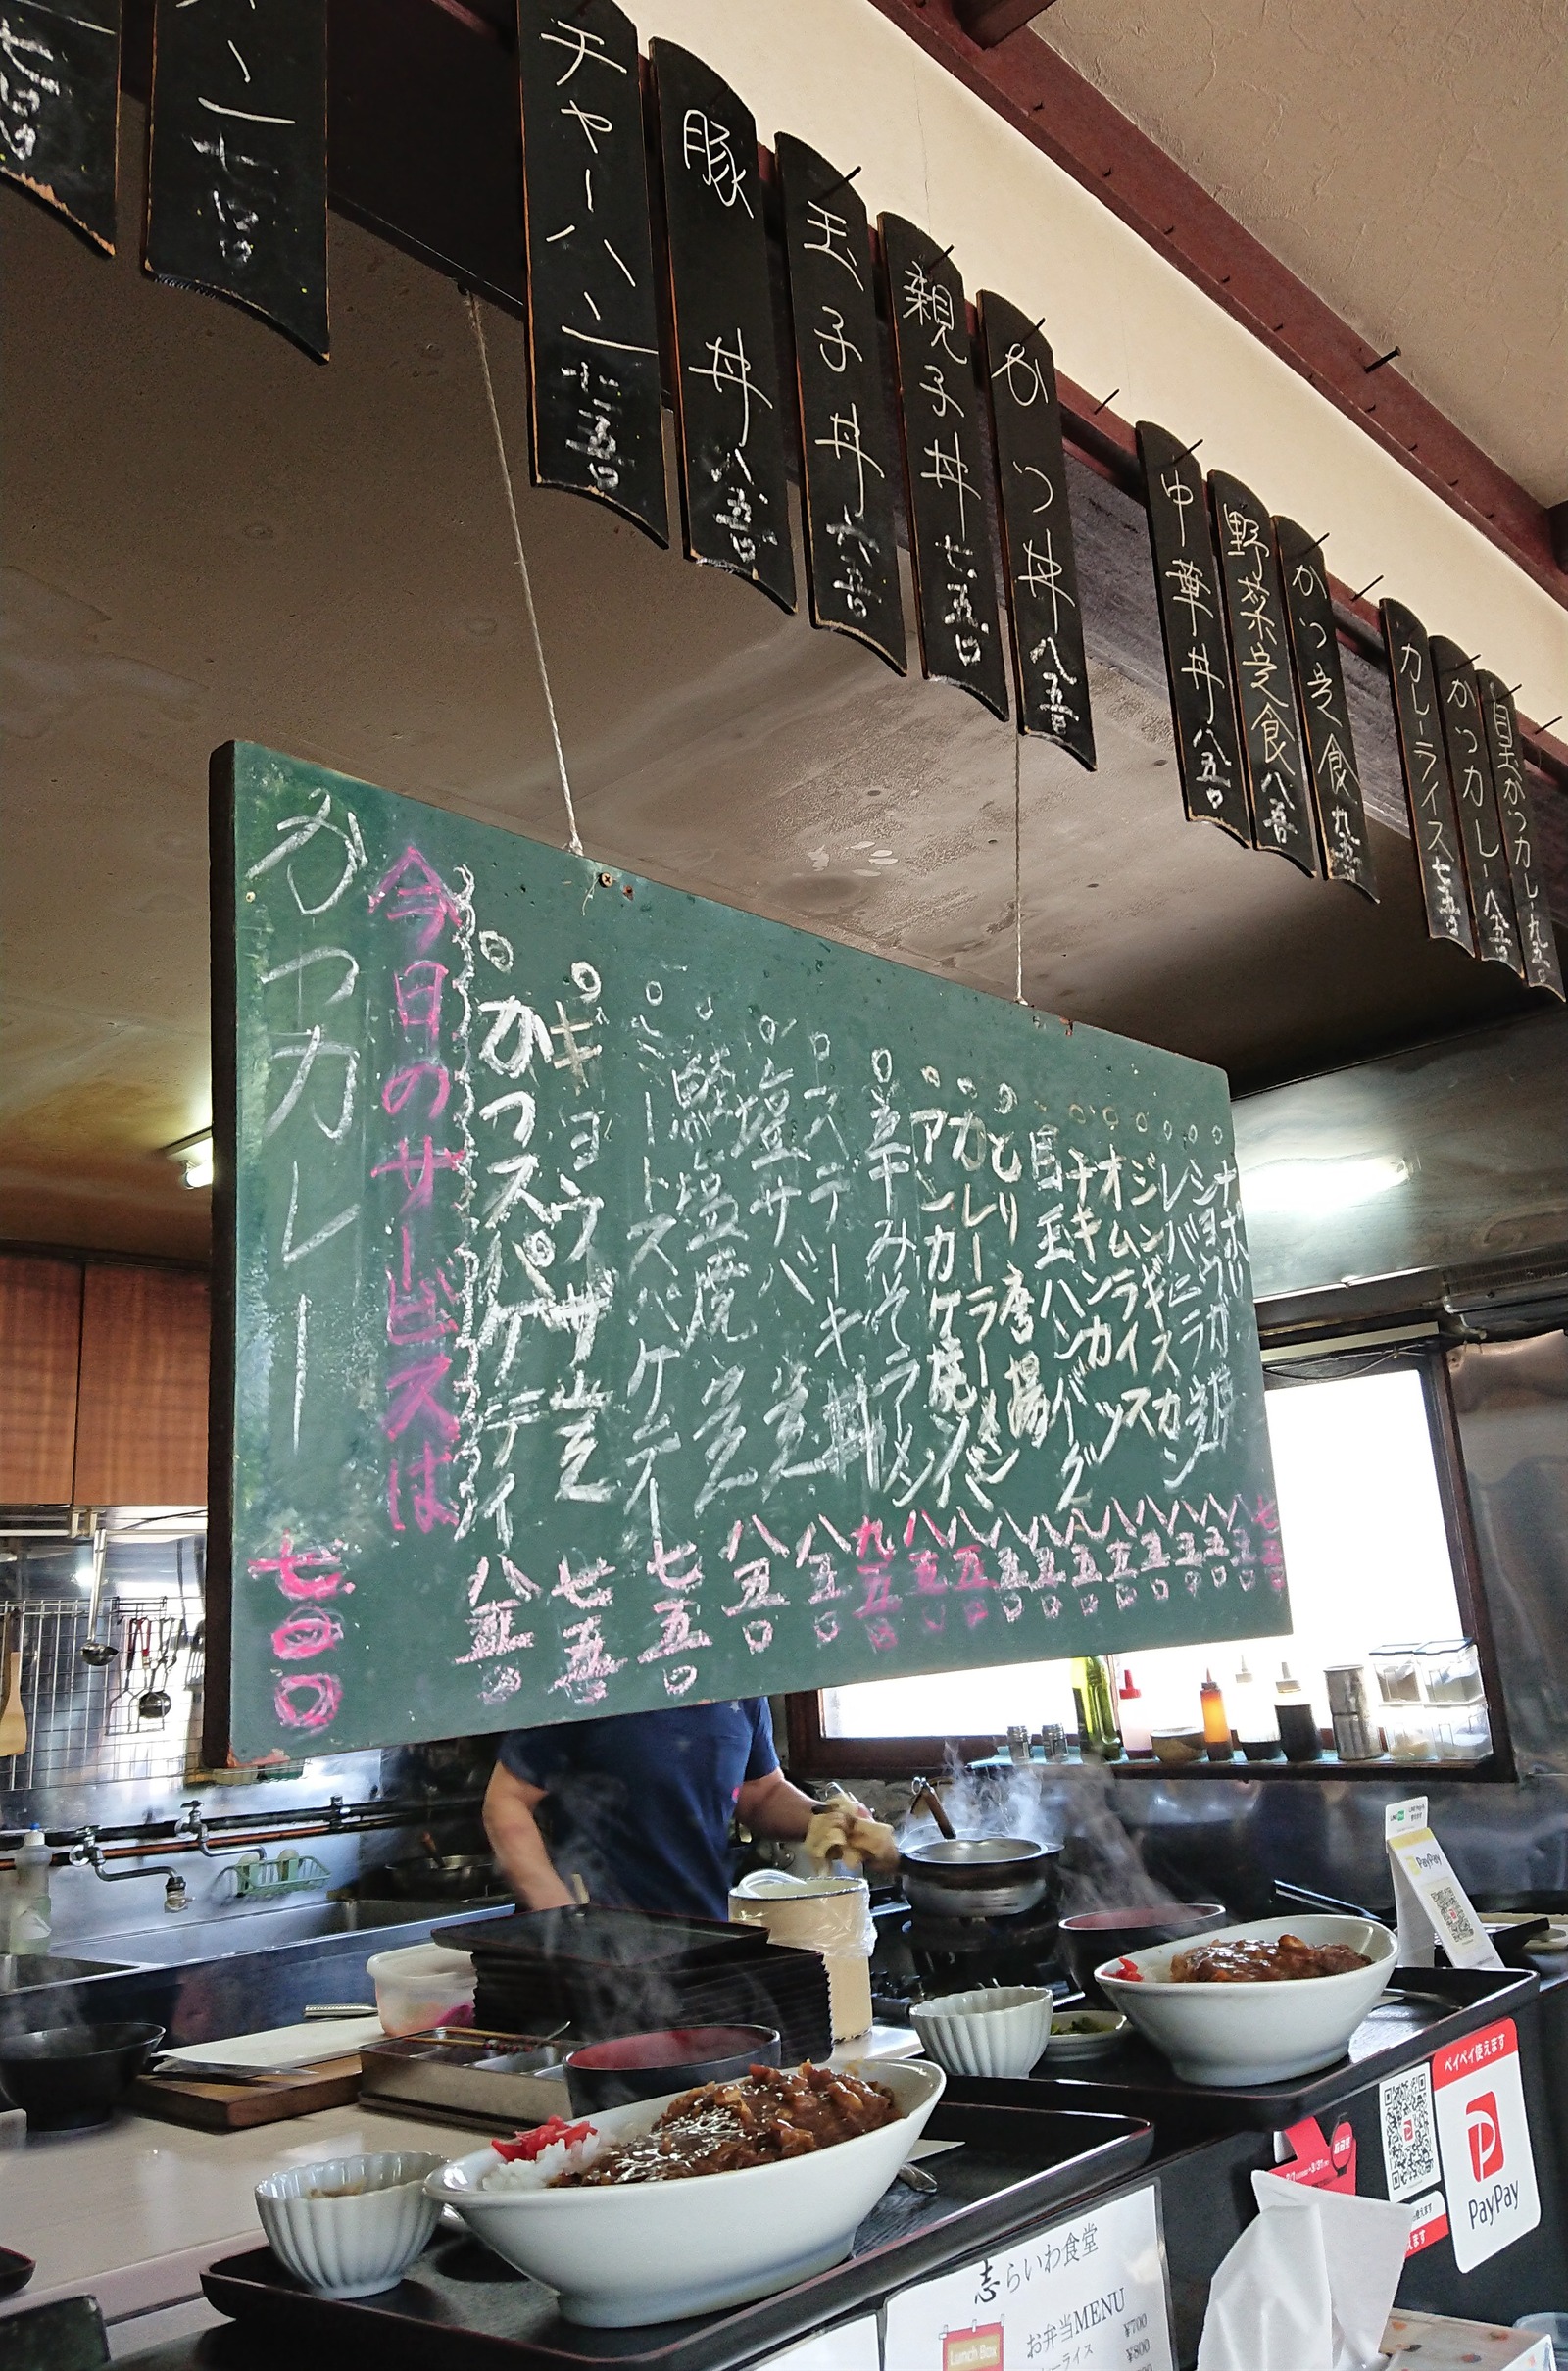 チャーハン 七五〇
豚丼 八五〇
玉子丼 六五〇
親子丼 七五〇
かつ丼 八五〇
中華丼 八五〇
野菜定食 八五〇
かつ定食 九五〇
カレーライス 七五〇
かつカレー 八五〇
目玉かつカレー 九五〇
かつカレー 七〇〇
今日のサービスは
かつスパゲティ 八五〇
ギョウザ定 七五〇
ミートスパゲティー 七五〇
鮭塩焼定 八五〇
塩サバ定 八五〇
ステーキ丼 九五〇
辛みそラーメン 八五〇
アンカケ焼ソバ 八五〇
カレーラーメン 八五〇
とり唐揚 八五〇
目玉ハンバーグ 八五〇
チキンカツ 八五〇
オムライス 八五〇
ジンギスカン 八五〇
レバニラ
ショウガ
ナポリ
志らいわ食堂
お弁当MENU
Lunch Box
ーライス
¥700
¥800
PayPay
ペイペイ使えます
PayPay